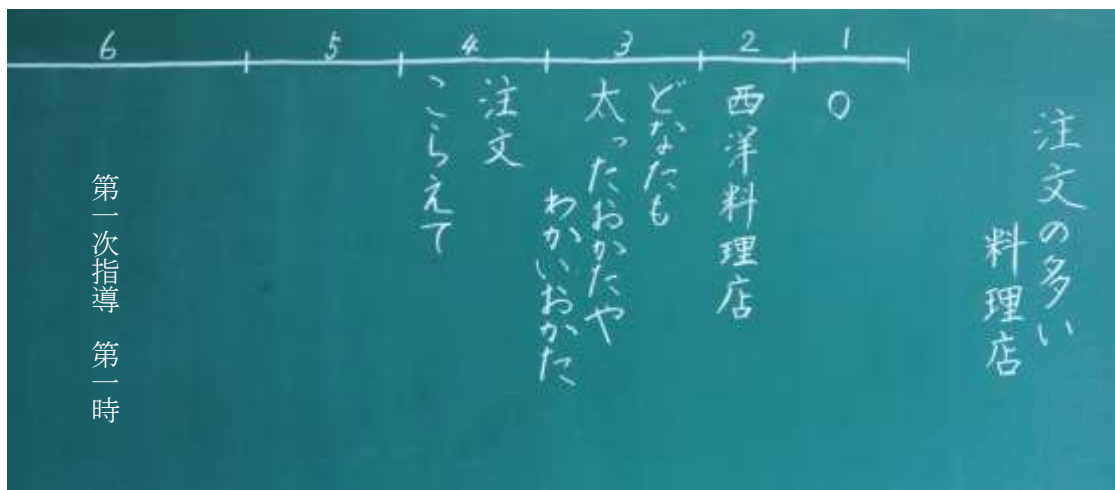 注文の多い
料理店
1
〇
2
西洋料理店
3
どなたも
太ったおかたや
わかいおかた
4
注文
こらえて
5
6
第一次指導 第一時